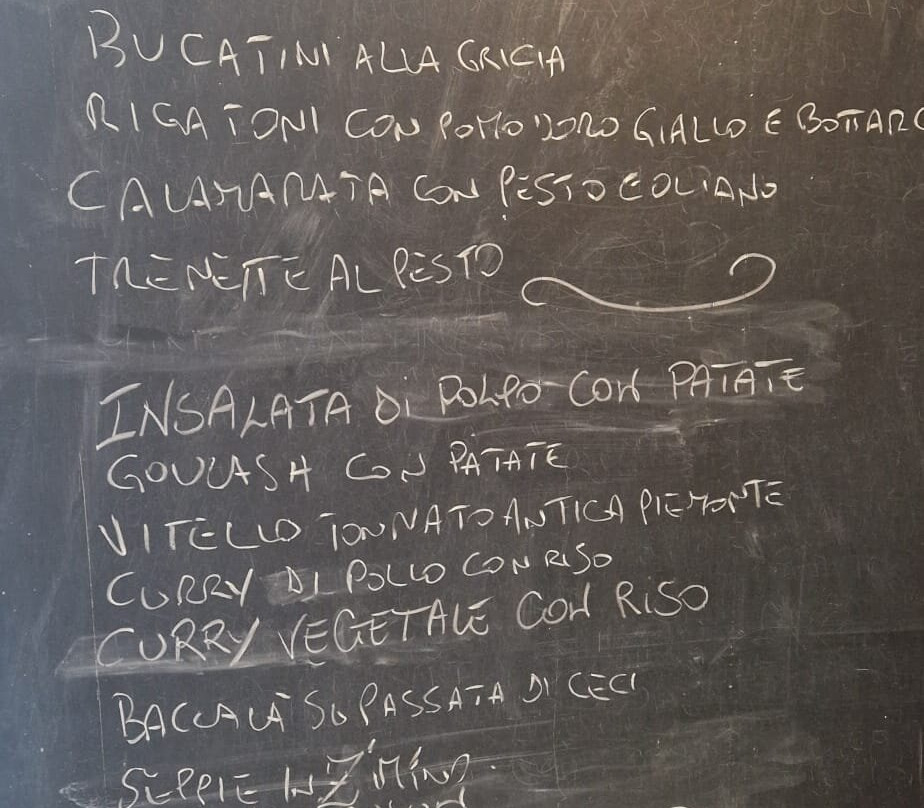 BUCATINI ALLA GRICIA
RIGATONI CON POMODORO GIALLO E BOTTARG
CALAMARATA CON PESTO EOLIANO
TRENETTE AL PESTO
INSALATA Di POLPO CON PATATE
GOULASH CON PATATE
VITELLO TONNATO ANTICA PIEMONTE
CURRY DI POLLO CON RISO
CURRY VEGETALE CON RiSO
BACCALÀ SU PASSATA DI CECI
SEPPIE IN ZIMINO